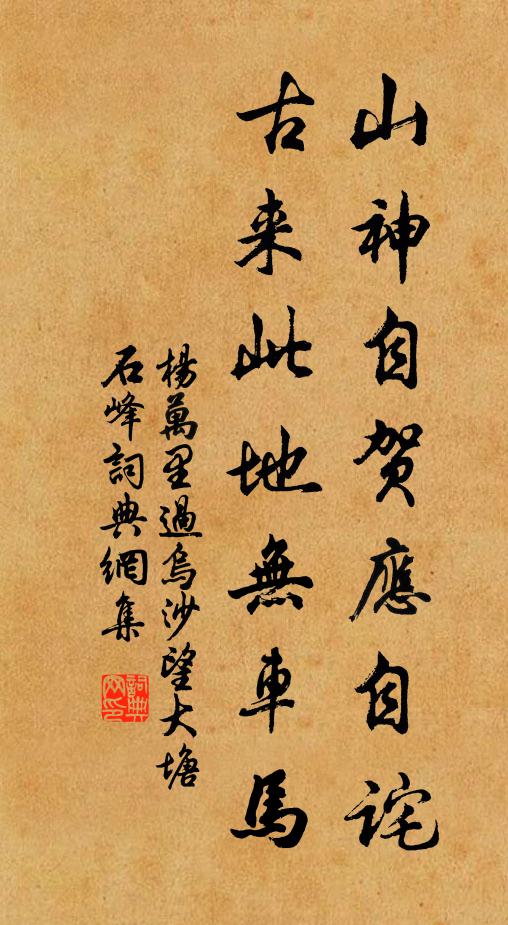 山神自贺應自詫
古来此地無車馬
楊萬里過烏沙望大塘
石峰詞典網集
詞典网印